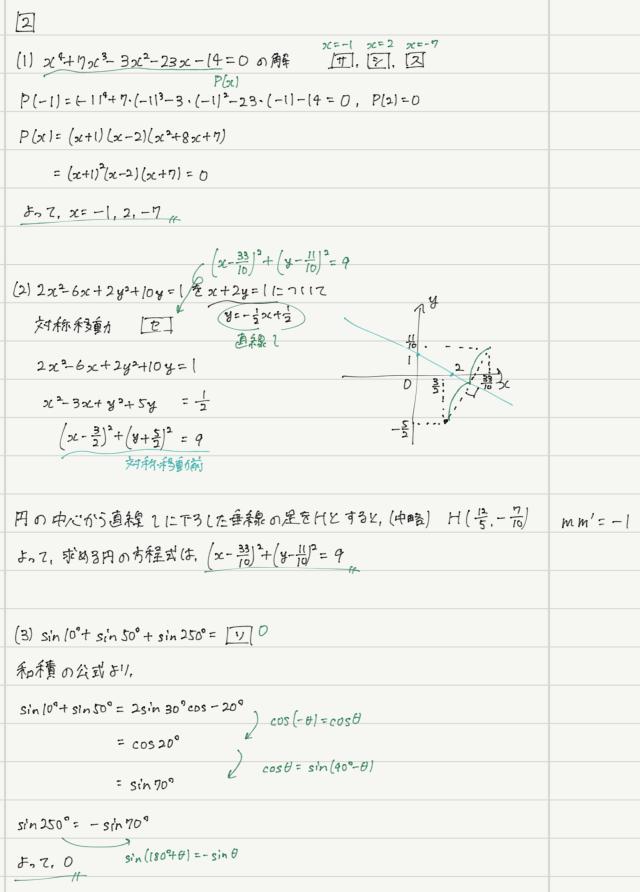 2
x=-1 x=2 x=-7
(1) x⁴+7x³-3x²-23x-14=0 の解 サ, シ, ス
P(x)
P(-1)=(-1)⁴+7・(-1)³-3・(-1)²-23・(-1)-14=0, P(2)=0
P(x)=(x+1)(x-2)(x²+8x+7)
=(x+1)²(x-2)(x+7)=0
よって, x=-1, 2, -7
(x-33/10)²+(y-11/10)²=9
(2) 2x²-6x+2y²+10y=1 を x+2y=1 について
対称移動 セ y=-1/2x+1/2
直線 l
2x²-6x+2y²+10y=1
x²-3x+y²+5y =1/2
(x-3/2)²+(y+5/2)²=9
対称移動前
y
11/10
1
0 3/2 2 33/10 x
-5/2
円の中心から直線 l に下ろした垂線の足をHとすると, (中略) H(12/5, -7/10) mm'=-1
よって, 求める円の方程式は, (x-33/10)²+(y-11/10)²=9
(3) sin10°+sin50°+sin250°= ソ 0
和積の公式より,
sin10°+sin50°=2sin30°cos-20°
cos(-θ)=cosθ
=cos20°
cosθ=sin(90°-θ)
=sin70°
sin250°=-sin70°
よって, 0 sin(180°+θ)=-sinθ